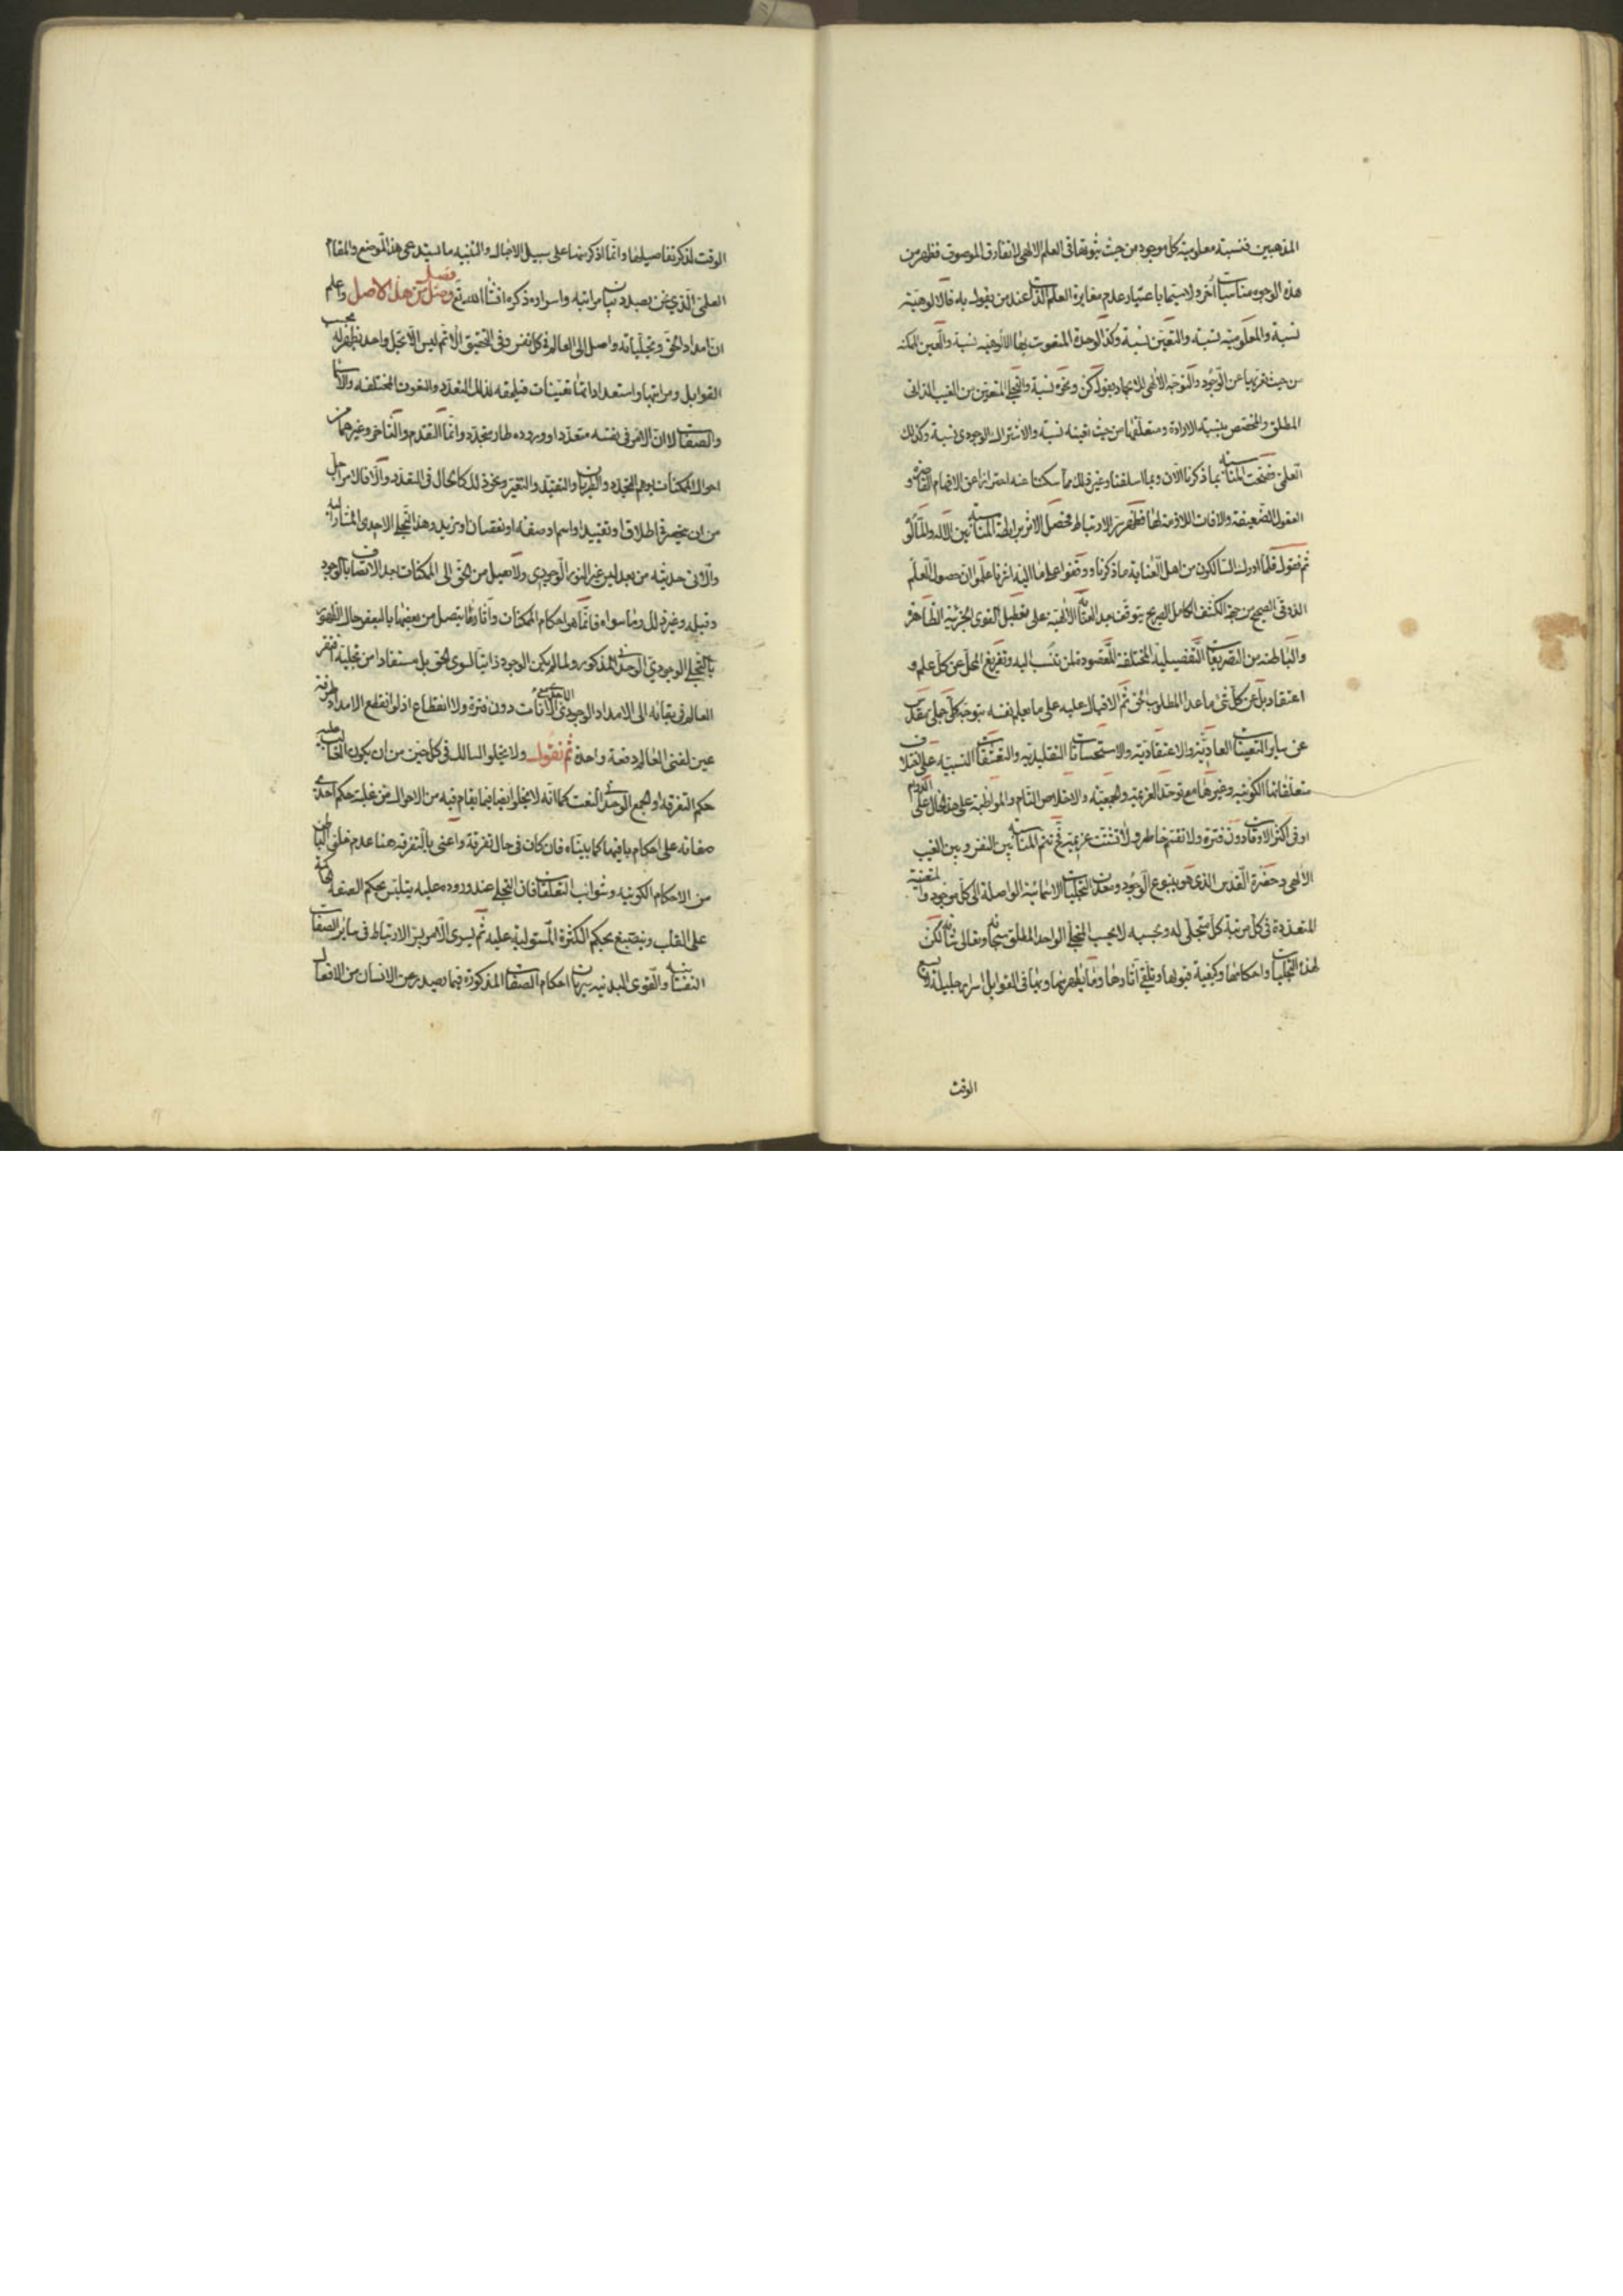 المذهبين فنسبة معلومية كل موجود من حيث ثبوتها في العلم الالهي لا تفارق الموصوف فظهر من
هذه الوجوه مناسبات أخر ولا سيما باعتبار عدم مغايرة العلم الذات عند من يقول به فالالوهية
نسبة والمعلومية نسبة والتعين نسبة وكذا الوحدة المنعوت بها الالوهية نسبة والعين الممكنة
من حيث تعريها عن الوجود والتوجه الالهي للايجاد بقول كن ونحوه نسبة والتجلي المتعين من الغيب الذاتي
المطلق والمختص بنسبة الارادة ومتعلقها من حيث تعينه نسبة والاشتراك الوجودي نسبة وكذلك
العلمي فصحت المناسبة بما ذكرنا الآن وبما اسلفنا وغير ذلك مما سكتنا عنه احترازا عن الافهام القاصرة و
العقول الضعيفة والآفات اللازمة لها فظهر سر الارتباط فحصل الاثر برابطة المناسبة بين الاله والمألوه
ثم نقول فلما ادرك السالكون من اهل العناية ما ذكرنا ووقفوا على ما اليه اشرنا علموا ان حصول العلم
الذوقي الصحيح من جهة الكشف الكامل الصريح يتوقف بعد العناية الالهية على تعطيل القوى الجزئية الظاهرة
والباطنة من التصريفات التفصيلية المختلفة المقصودة لمن تنسب اليه وتفريغ المحل عن كل علم و
اعتقاد بل عن كل شيء ما عدا المطلوب الحق ثم الاقبال عليه على ما يعلم نفسه بتوجه كلي جملي مقدس
عن سائر التعينات العادية والاعتقادية والاستحسانات التقليدية والتعشقات النسبية على اختلاف
متعلقاتها الكونية وغيرها مع توحد العزيمة والجمعية والاخلاص التام والمواظبة على هذا الحال على الدوام
او في اكثر الاوقات دون فترة ولا تقسم خاطر ولا تشتت عزيمة فح تتم المناسبة بين النفس وبين الغيب
الالهي وحضرة القدس الذي هو ينبوع الوجود ومعدن التجليات الاسمائية الواصلة الى كل موجود والمتعينة
المتعددة في كل مرتبة كل متجلى له وبحسبه لا بحسب المتجلي الواحد المطلق سبحانه وتعالى شأنه لكن
لهذه التجليات واحكامها وكيفية قبولها وتلقي آثارها وما يظهر منها وبها في القوابل اسرار جليلة لا يسع
الوقت
الوقت لذكر تفاصيلها وانما اذكر منها على سبيل الاجمال والتنبيه ما يستدعي هذا الموضع والمقام
العلمي الذي نحن بصدد بيان مراتبه واسراره ذكره ان شاء الله تع فصل وصل من هذا الاصل واعلم
ان امداد الحق وتجلياته واصل الى العالم في كل نفس وفي التحقيق الاتم ليس الا تجل واحد يظهر له بحسب
القوابل ومراتبها واستعداداتها تعينات فيلحقه لذلك التعدد والنعوت المختلفة والاسماء
والصفات لا ان الامر في نفسه متعدد او وروده طار متجدد وانما التقدم والتأخر وغيرهما من
احوال الممكنات يوهم التجدد والطريان والتقيد والتغير ونحو ذلك كالحال في التعدد والا فالامر اجل
من ان ينحصر في اطلاق او تقييد او اسم او صفة او نقصان او مزيد وهذا التجلي الاحدي المشار اليه
والآتي حديثه من بعد ليس غير النور الوجودي ولا يصل من الحق الى الممكنات بعد الاتصاف بالوجود
وقبله وغير ذلك وما سواه فانما هو احكام الممكنات وآثارها يتصل من بعضها بالبعض حال الظهور
بالتجلي الوجودي الوحداني المذكور ولما لم يكن الوجود ذاتيا لسوى الحق بل مستفادا من تجليه افتقر
العالم في بقائه الى الامداد الوجودي الاحدي مع الآنات دون فترة ولا انقطاع اذ لو انقطع الامداد طرفة
عين لفني العالم دفعة واحدة ثم نقول ولا يخلو السالك في كل حين من ان يكون الغالب عليه
حكم التفرقة او الجمع الوحداني النعت كما انه لا يخلو ايضا فيما يقام فيه من الاحوال من غلبة حكم احدى
صفاته على احكام باقيها كما بيناه فان كان في حال تفرقة واعني بالتفرقة هنا عدم خلو الباطن
من الاحكام الكونية وشوائب التعلقات فان التجلي عند وروده عليه يتلبس بحكم الصفة الحاكمة
على القلب وينصبغ بحكم الكثرة المستولية عليه ثم يسري الامر بسر الارتباط في سائر الصفات
النفسانية والقوى البدنية سريان احكام الصفات المذكورة فيما يصدر عن الانسان من الافعال